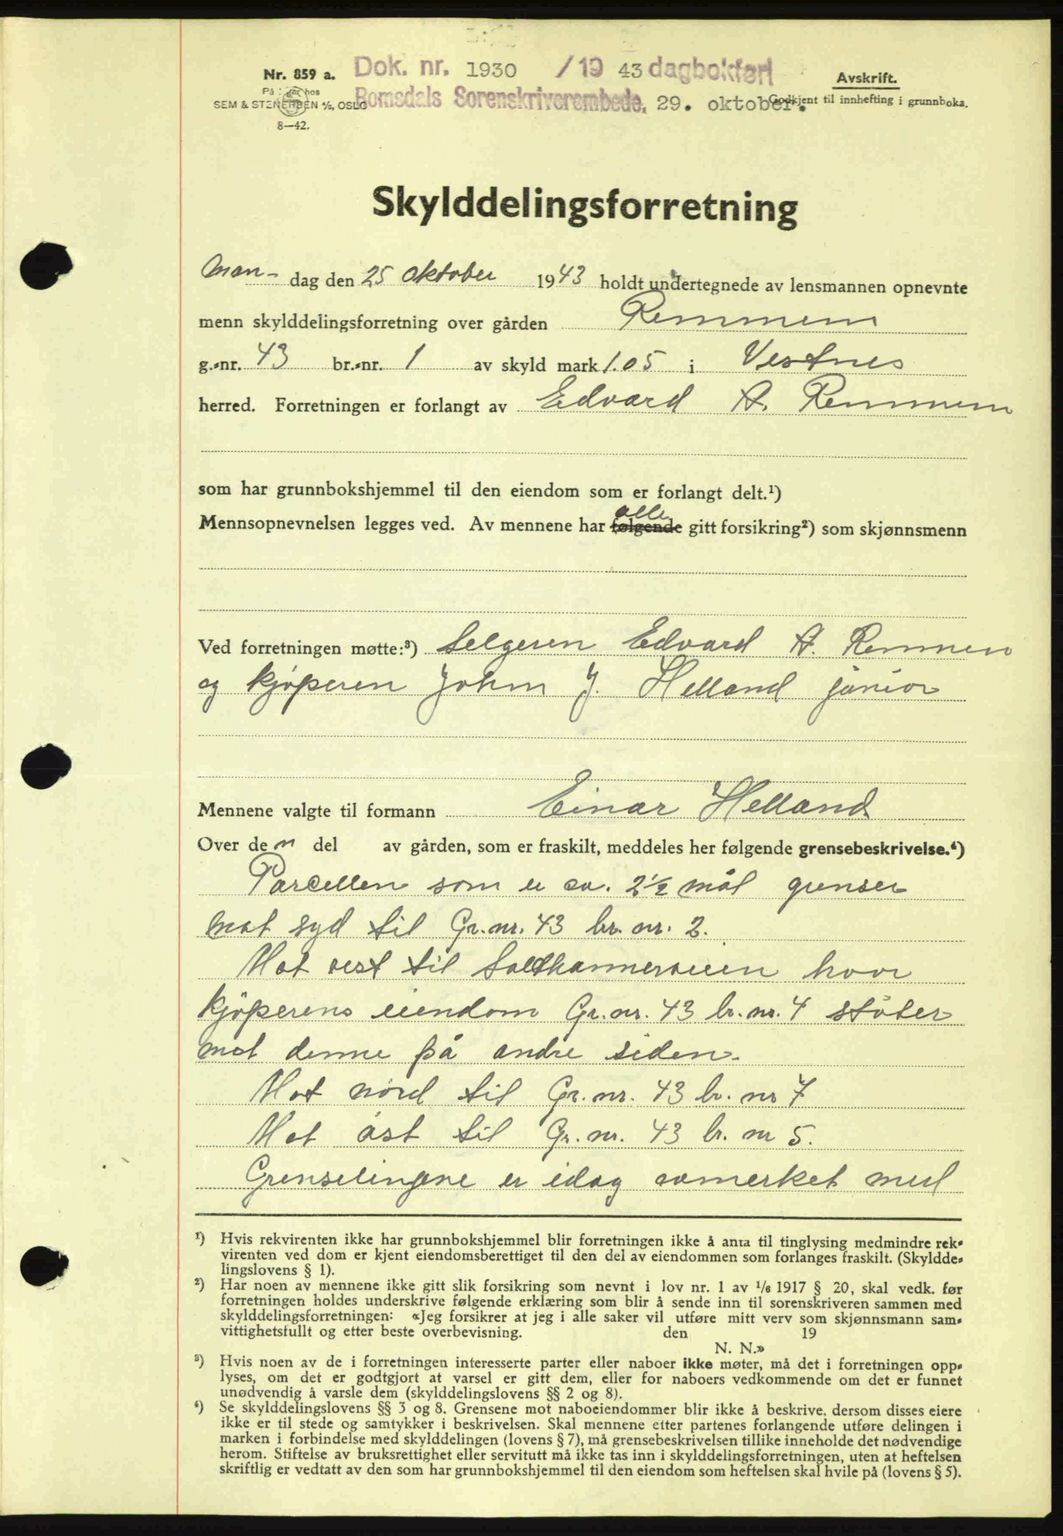 Nr. 859 a.
Dok. nr. 1930 /19 43 dagbokført
Avskrift.
På hos
SEM & STENERSEN A/S, OSLO
Romsdals Sorenskriverembede, 29. oktober.
Godkjent til innhefting i grunnboka.
8—42.
Skylddelingsforretning
Man- dag den 25 oktober 1943 holdt undertegnede av lensmannen opnevnte
menn skylddelingsforretning over gården Remmem
g.-nr. 43 br.-nr. 1 av skyld mark 1.05 i Vestnes
herred. Forretningen er forlangt av Edvard A. Remmem
som har grunnbokshjemmel til den eiendom som er forlangt delt.¹)
alle
Mennsopnevnelsen legges ved. Av mennene har følgende gitt forsikring²) som skjønnsmenn
Ved forretningen møtte:³) Selgeren Edvard A. Remmen
og kjøperen John J. Helland junior
Mennene valgte til formann Einar Helland
Over den del av gården, som er fraskilt, meddeles her følgende grensebeskrivelse.⁴)
Parcellen som er ca. 2½ mål grenser
mot syd til Gr.nr. 43 br. nr. 2.
Mot vest til hvor
kjøperens eiendom Gr.nr. 43 br.nr. 4 støter
mot denne på andre siden.
Mot nord til Gr. nr. 43 br. nr 7
Mot øst til Gr. nr. 43 br. nr 5.
Grenselingene er idag avmerket med
¹) Hvis rekvirenten ikke har grunnbokshjemmel blir forretningen ikke å anta til tinglysing medmindre rek-
virenten ved dom er kjent eiendomsberettiget til den del av eiendommen som forlanges fraskilt. (Skyldde-
lingslovens § 1).
²) Har noen av mennene ikke gitt slik forsikring som nevnt i lov nr. 1 av 1/6 1917 § 20, skal vedk. før
forretningen holdes underskrive følgende erklæring som blir å sende inn til sorenskriveren sammen med
skylddelingsforretningen: «Jeg forsikrer at jeg i alle saker vil utføre mitt verv som skjønnsmann sam-
vittighetsfullt og etter beste overbevisning. den 19
N. N.»
³) Hvis noen av de i forretningen interesserte parter eller naboer ikke møter, må det i forretningen opp-
lyses, om det er godtgjort at varsel er gitt dem, eller for naboers vedkommende om det er funnet
unødvendig å varsle dem (skylddelingslovens §§ 2 og 8).
⁴) Se skylddelingslovens §§ 3 og 8. Grensene mot naboeiendommer blir ikke å beskrive, dersom disses eiere
ikke er til stede og samtykker i beskrivelsen. Skal mennene etter partenes forlangende utføre delingen i
marken i forbindelse med skylddelingen (lovens § 7), må grensebeskrivelsen tillike inneholde det nødvendige
herom. Stiftelse av bruksrettighet eller servitutt må ikke tas inn i skylddelingsforretningen, uten at heftelsen
skriftlig er vedtatt av den som har grunnbokshjemmel til den eiendom som heftelsen skal hvile på (lovens § 5).